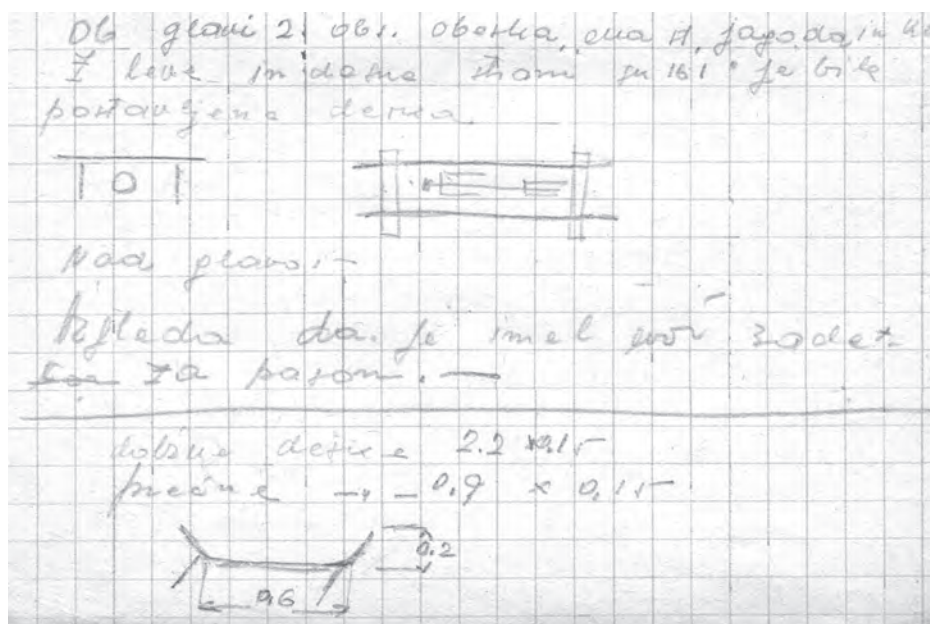 Ob glavi 2 obs. obeska, ena st. jagoda in
Z leve in desne strani gr. 161 je bila
postavljena deska
Nad glavo:—
Izgleda da je imel nož zadet
za pasom. —
dolžne deske 2.2 × 0.15
prečne —„— 0.9 × 0.15
0.2
0.6